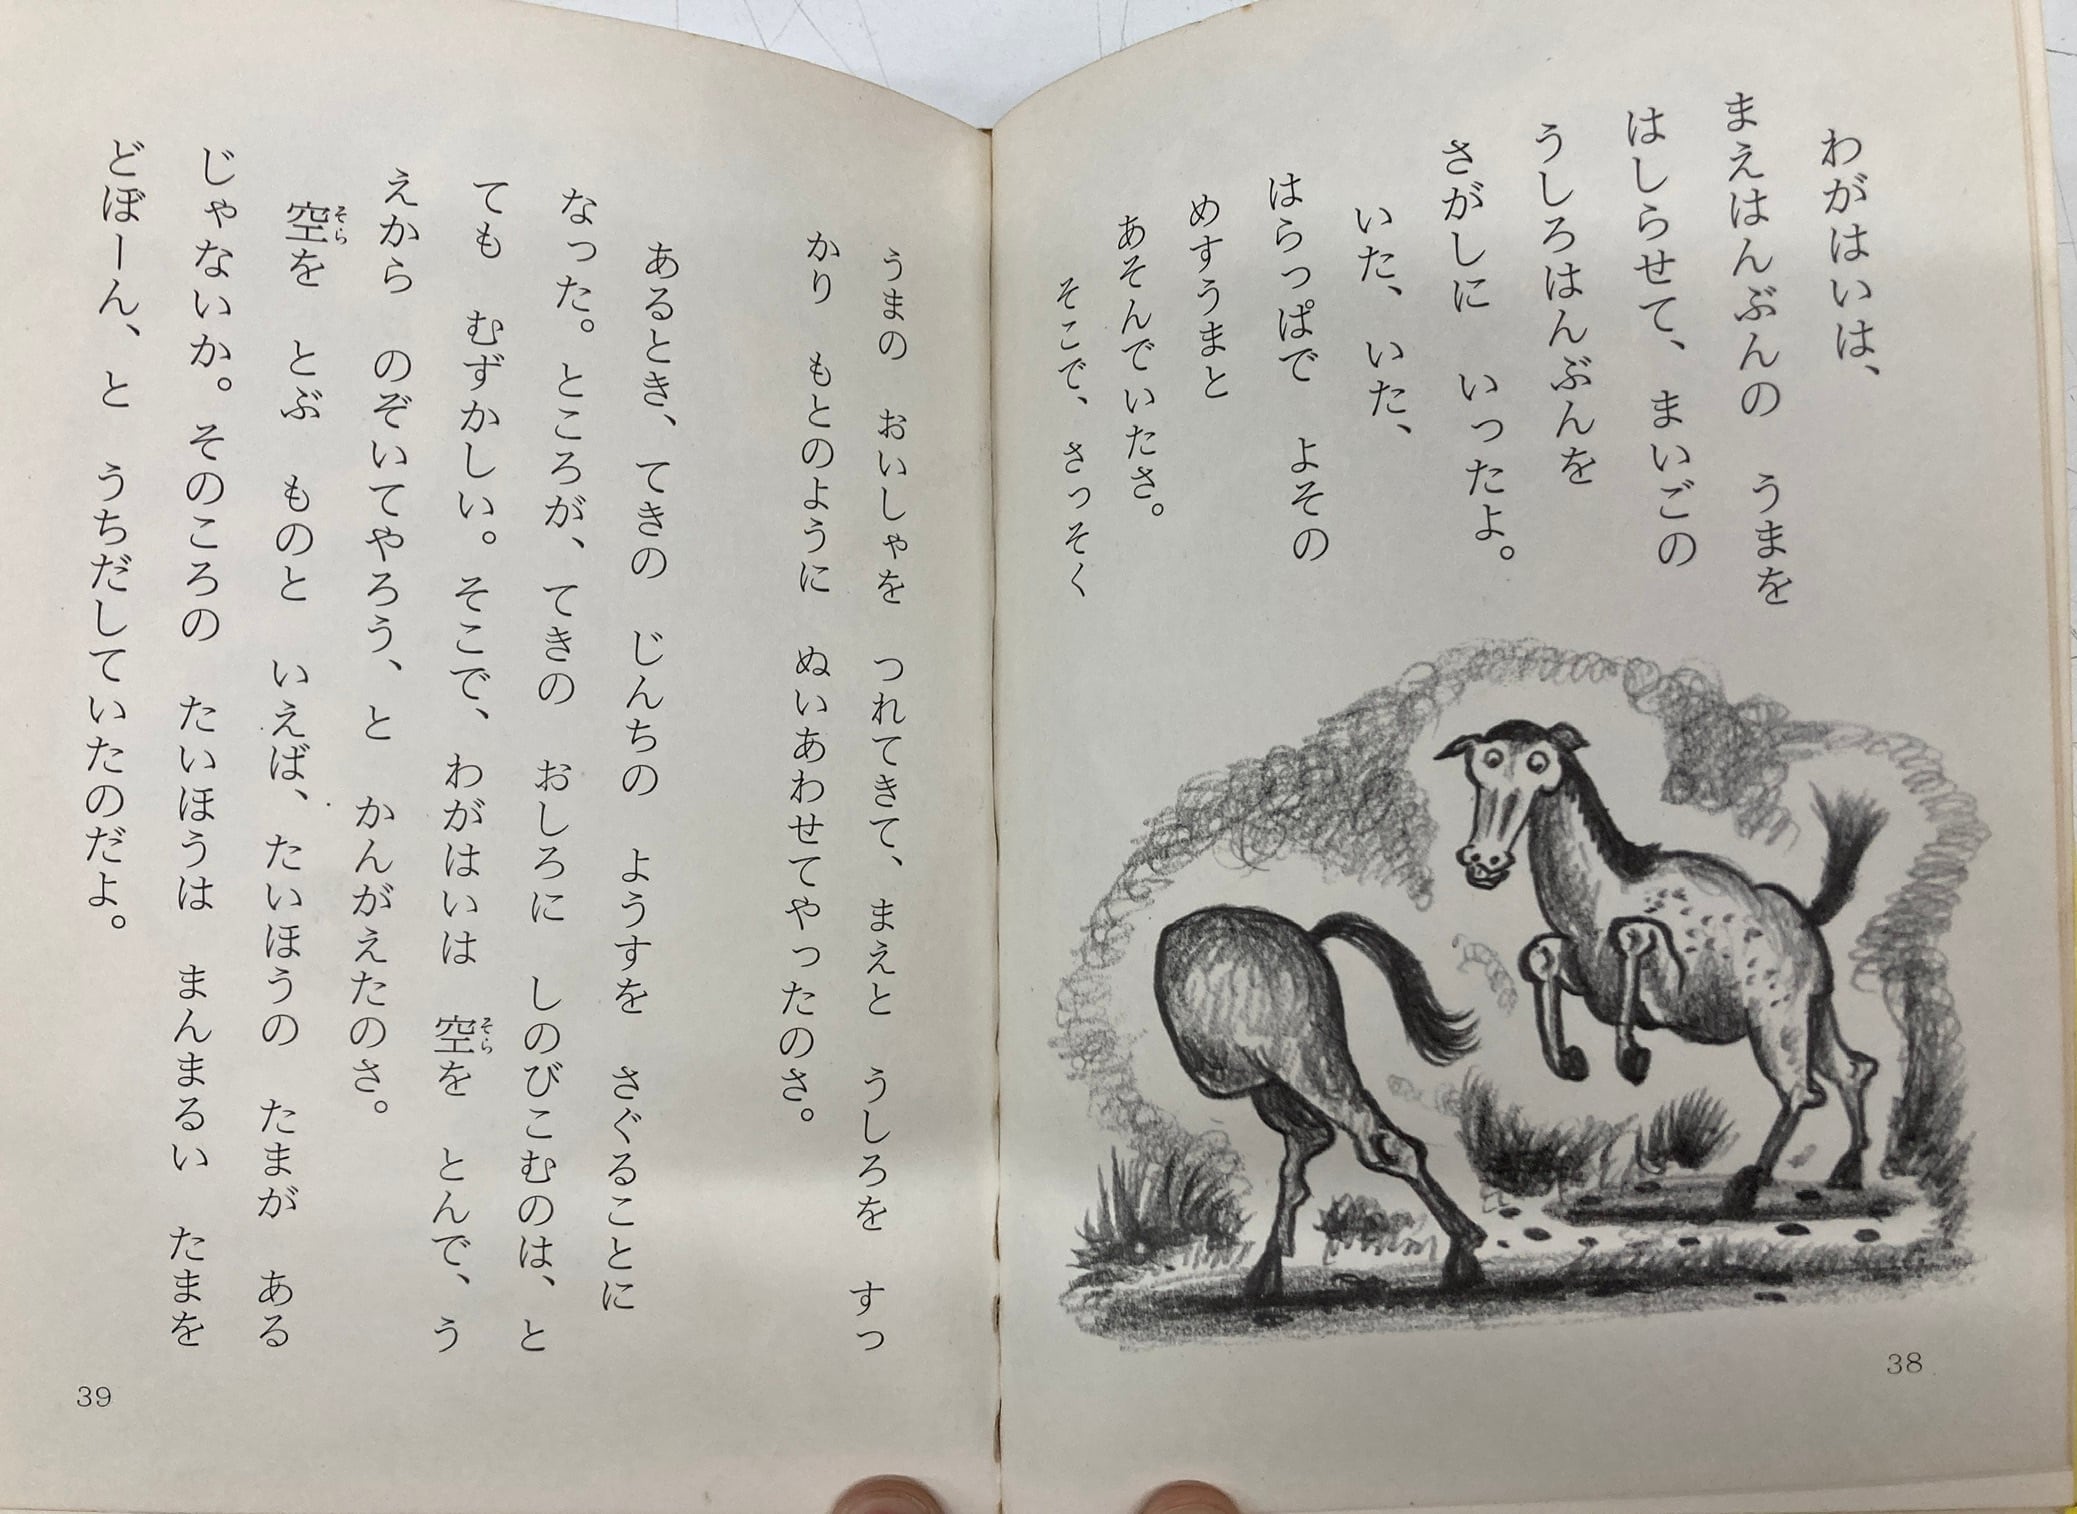 わがはいは、
まえはんぶんの　うまを
はしらせて、まいごの
うしろはんぶんを
さがしに　いったよ。
いた、いた、
はらっぱで　よその
めすうまと
あそんでいたさ。
そこで、さっそく
38
うまの　おいしゃを　つれてきて、まえと　うしろを　すっ
かり　もとのように　ぬいあわせてやったのさ。
あるとき、てきの　じんちの　ようすを　さぐることに
なった。ところが、てきの　おしろに　しのびこむのは、と
ても　むずかしい。そこで、わがはいは　空を　とんで、う
えから　のぞいてやろう、と　かんがえたのさ。
空を　とぶ　ものと　いえば、たいほうの　たまが　ある
じゃないか。そのころの　たいほうは　まんまるい　たまを
どぼーん、と　うちだしていたのだよ。
39